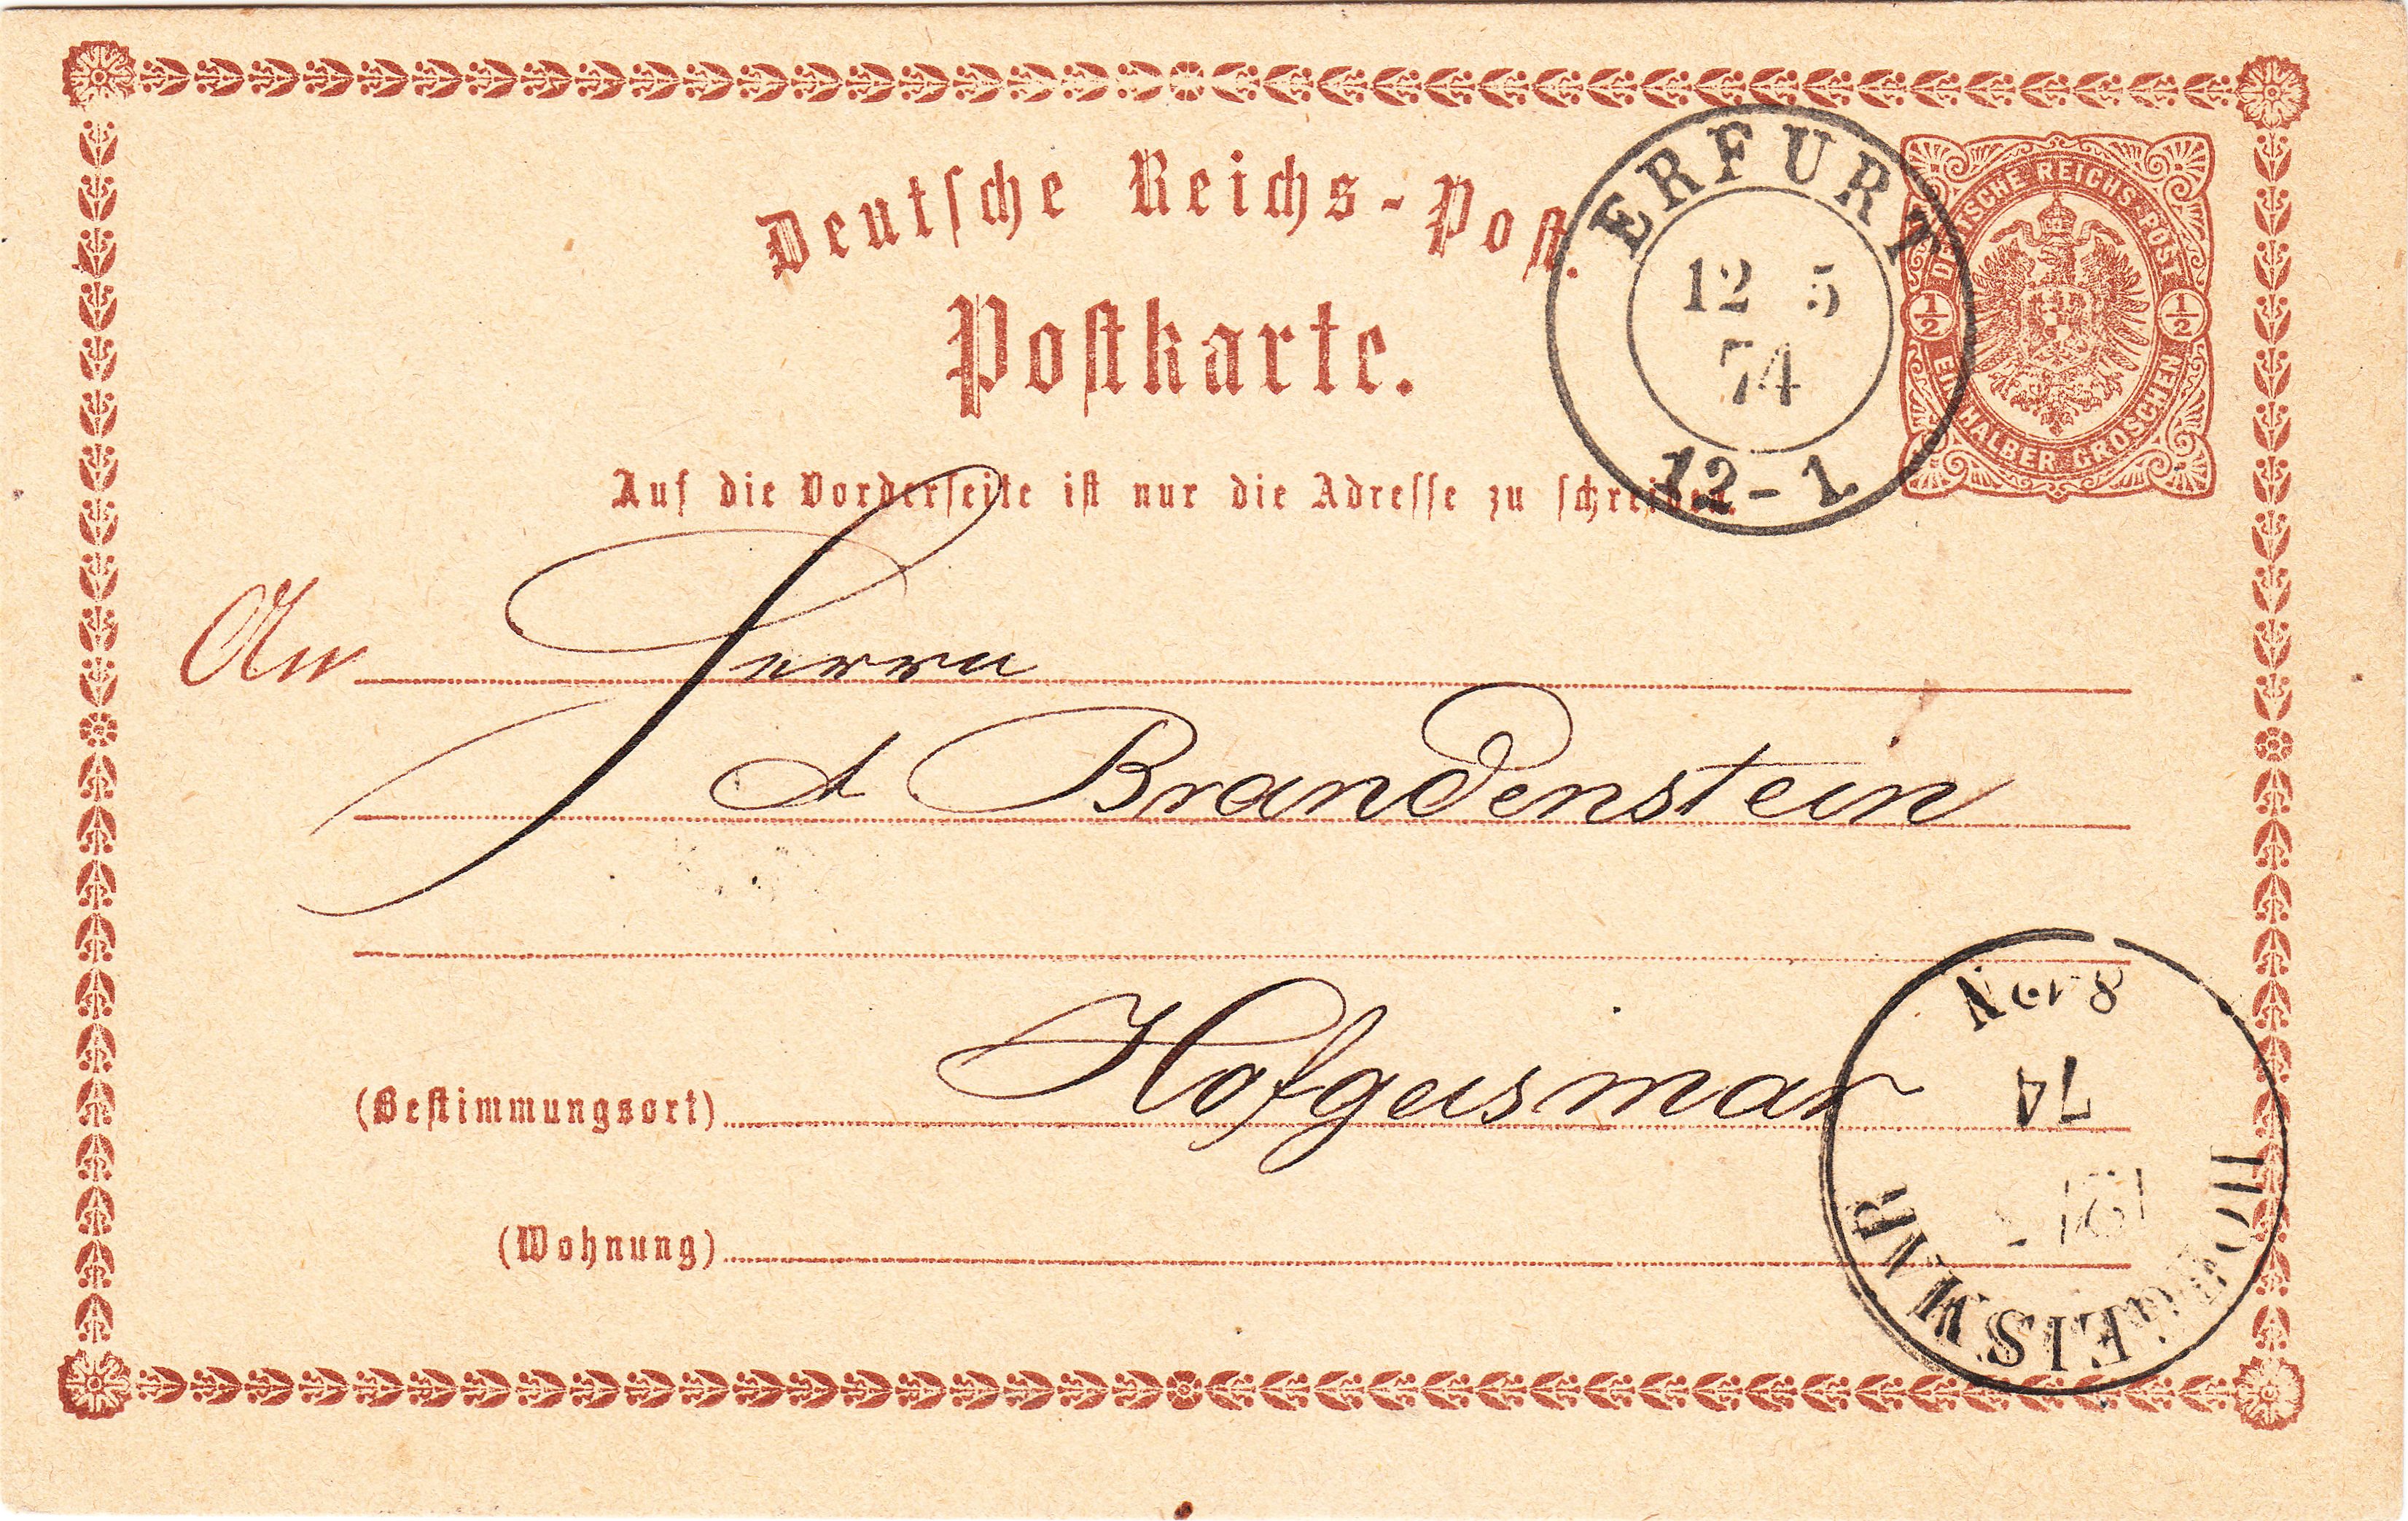 Deutsche Reichs-Post.
Postkarte.
ERFURT
12 5
74
12-1.
DEUTSCHE REICHS-POST
1/2 1/2
EIN HALBER GROSCHEN
Auf die Vorderseite ist nur die Adresse zu schreiben.
An Herrn
A Brandenstein
(Bestimmungsort) Hofgeismar
(Wohnung)
HOFGEISMAR
12
74
8 N